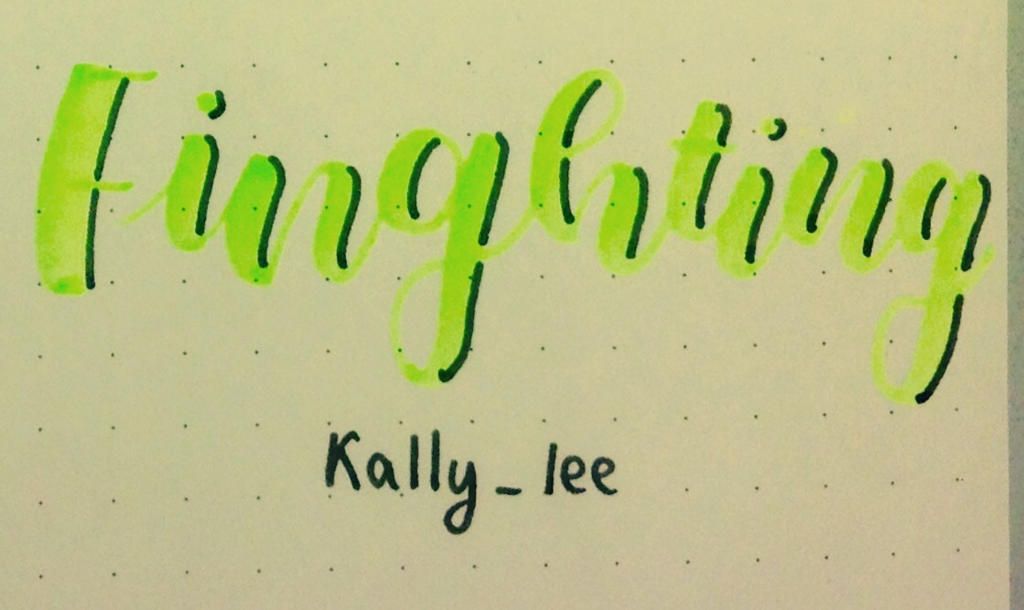 Finghting
Kally_lee